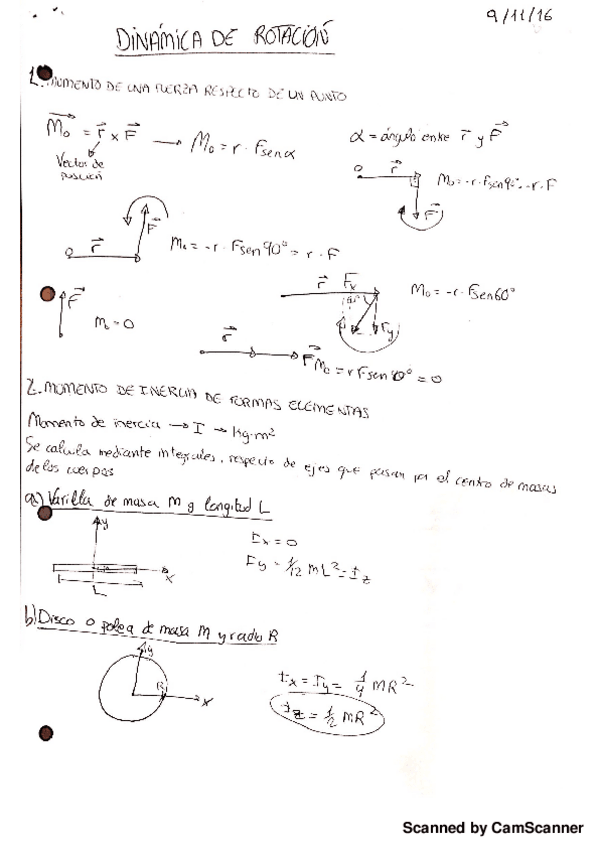 9/11/16
DINÁMICA DE ROTACIÓN
1. MOMENTO DE UNA FUERZA RESPECTO DE UN PUNTO
M₀ = r x F → M₀ = r · F sen α
Vector de posición
α = ángulo entre r y F
O r
M₀ = -r · F sen 90° = -r · F
F
F
O r
M₀ = -r · F sen 90° = r · F
r Fx
60°
Fy
M₀ = -r · F sen 60°
F
M₀ = 0
r
F M₀ = r F sen 0° = 0
2. MOMENTO DE INERCIA DE FORMAS ELEMENTAS
Momento de inercia → I → kg·m²
Se calcula mediante integrales, respecto de ejes que pasan por el centro de masas
de los cuerpos
a) Varilla de masa M y longitud L
y
x
L
Ix = 0
Iy = 1/12 ML² = Iz
b) Disco o polea de masa M y radio R
y
R
x
Ix = Iy = 1/4 MR²
Iz = 1/2 MR²
Scanned by CamScanner